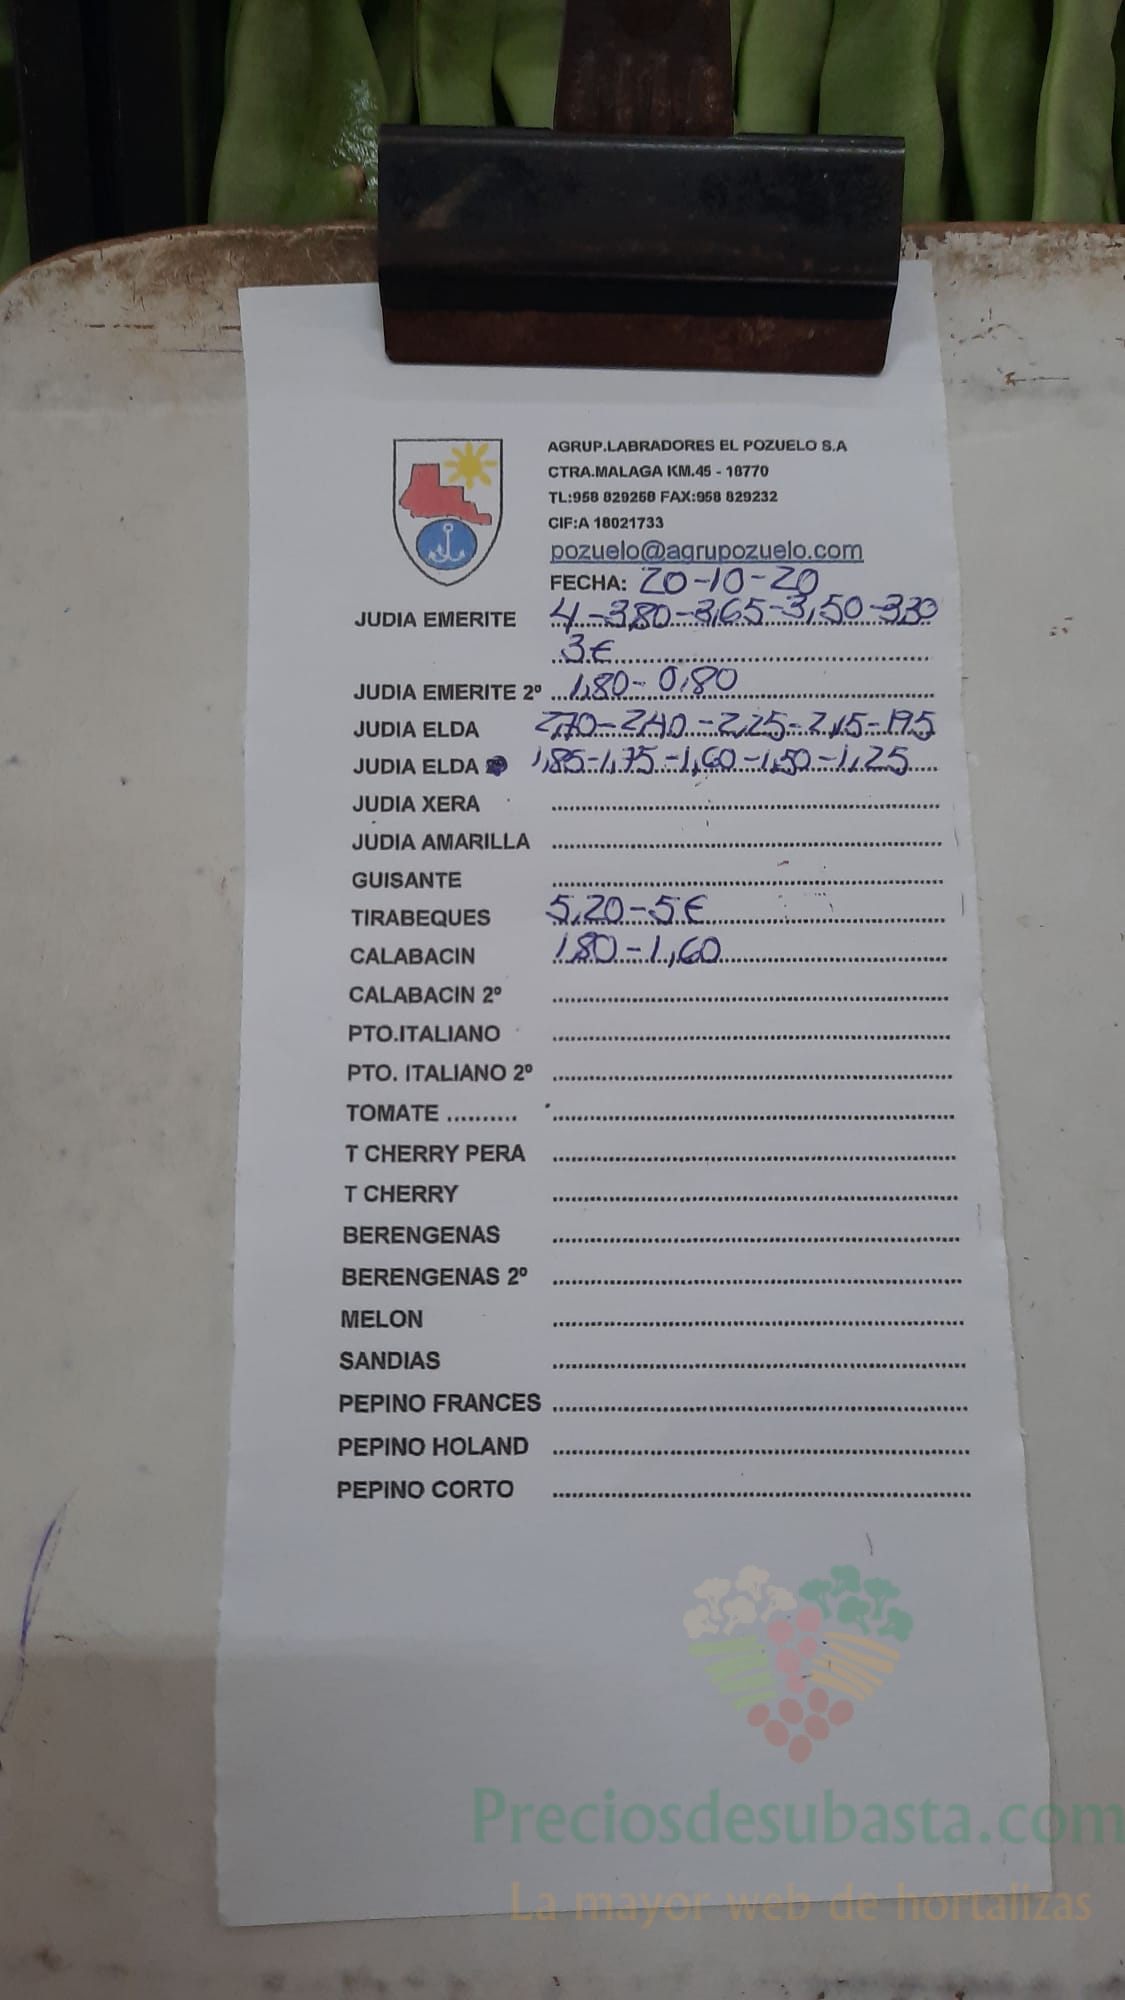 AGRUP.LABRADORES EL POZUELO S.A
CTRA.MALAGA KM.45 - 18770
TL:958 829258 FAX:958 829232
CIF:A 18021733
pozuelo@agrupozuelo.com
FECHA: 20-10-20
JUDIA EMERITE 4-3,80-3,65-3,50-3,30
3€
JUDIA EMERITE 2º 1,80-0,80
JUDIA ELDA 2,70-2,40-2,25-2,15-1,95
JUDIA ELDA 1,85-1,75-1,60-1,50-1,25
JUDIA XERA
JUDIA AMARILLA
GUISANTE
TIRABEQUES 5,20-5€
CALABACIN 1,80-1,60
CALABACIN 2º
PTO.ITALIANO
PTO. ITALIANO 2º
TOMATE ..........
T CHERRY PERA
T CHERRY
BERENGENAS
BERENGENAS 2º
MELON
SANDIAS
PEPINO FRANCES
PEPINO HOLAND
PEPINO CORTO
Preciosdesubasta.com
La mayor web de hortalizas